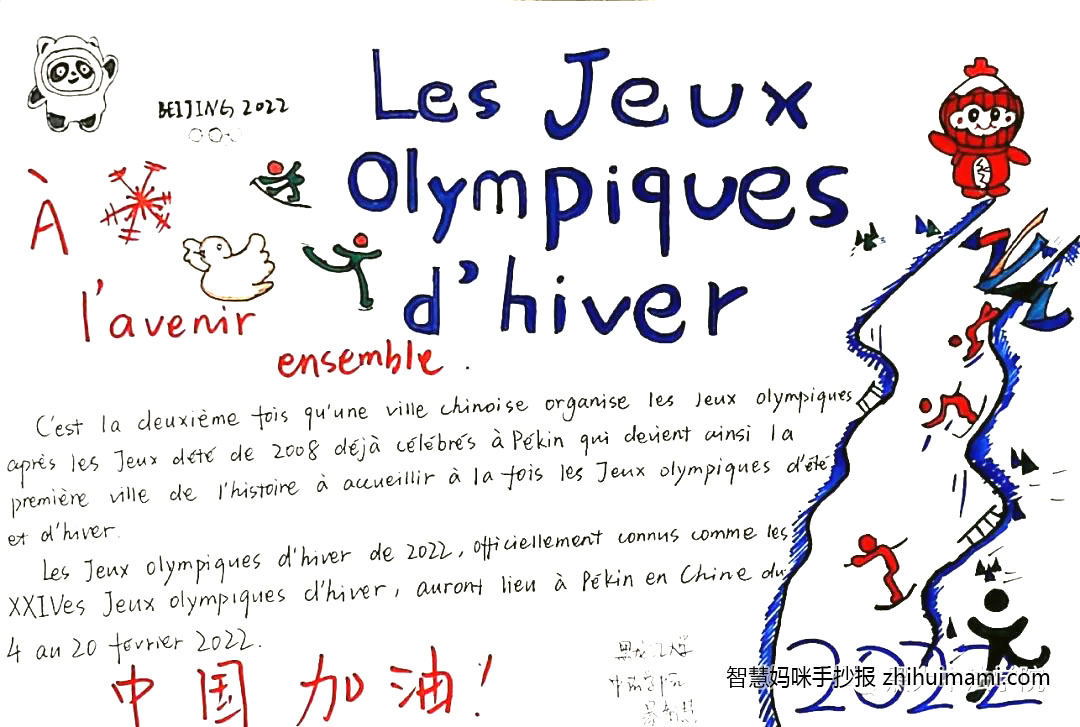 BEIJING 2022
Les Jeux
Olympiques
d'hiver
À
l'avenir
ensemble.
C'est la deuxième fois qu'une ville chinoise organise les Jeux olympiques
après les Jeux d'été de 2008 déjà célébrés à Pékin qui devient ainsi la
première ville de l'histoire à accueillir à la fois les Jeux olympiques d'été
et d'hiver.
Les Jeux olympiques d'hiver de 2022, officiellement connus comme les
XXIVes Jeux olympiques d'hiver, auront lieu à Pékin en Chine du
4 au 20 février 2022.
中国加油!
黑龙江大学
2022
智慧妈咪手抄报 zhihuimami.com